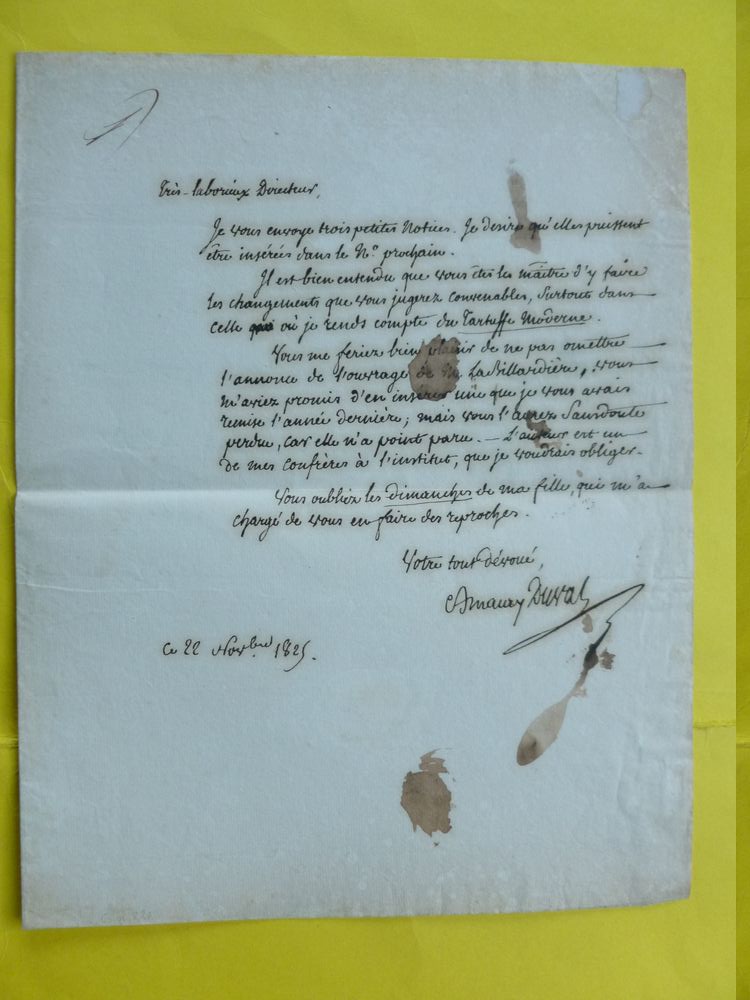 Très-laborieux Directeur,
Je vous envoye trois petites Notices. Je desire qu'elles puissent
être insérées dans le N.º prochain.
Il est bien entendu que vous êtes les maître d'y faire
les changements que vous jugerez convenables, surtout dans
celle où je rends compte du Tartuffe Moderne.
Vous me feriez bien plaisir de ne pas omettre
l'annonce de l'ouvrage de M. Labillardière, vous
m'aviez promis d'en insérer une que je vous avais
remise l'année dernière; mais vous l'aurez sansdoute
perdue, car elle n'a point paru. — L'auteur est un
de mes confrères à l'institut, que je voudrais obliger.
Vous oubliez les dimanches de ma fille, qui m'a
chargé de vous en faire des reproches.
Votre tout dévoué,
Amaury Duval
Ce 22 Nov.bre 1825.